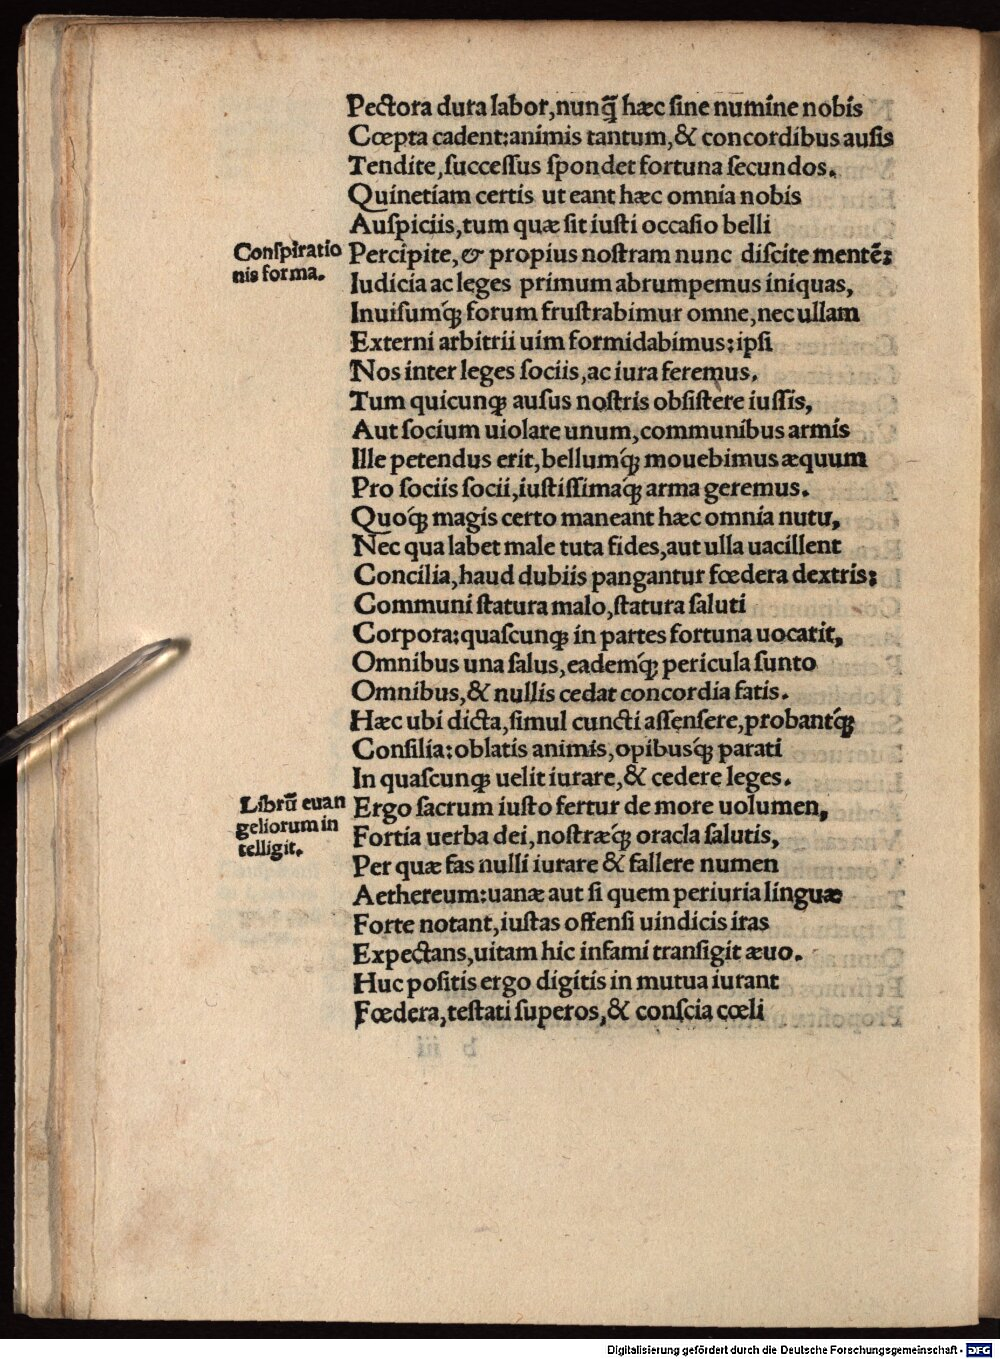 Pectora dura labor,nunq̃ hæc ſine numine nobis
Cœpta cadent:animis tantum,& concordibus auſis
Tendite,ſucceſſus ſpondet fortuna ſecundos.
Quinetiam certis ut eant hæc omnia nobis
Auſpiciis,tum quæ ſit iuſti occaſio belli
Conſpiratio
nis forma.
Percipite,& propius noſtram nunc diſcite mentē:
Iudicia ac leges primum abrumpemus iniquas,
Inuiſumq́ꝫ forum fruſtrabimur omne,nec ullam
Externi arbitrii uim formidabimus:ipſi
Nos inter leges ſociis,ac iura feremus.
Tum quicunqꝫ auſus noſtris obſiſtere iuſſis,
Aut ſocium uiolare unum,communibus armis
Ille petendus erit,bellumq́ꝫ mouebimus æquum
Pro ſociis ſocii,iuſtiſſimaq́ꝫ arma geremus.
Quoq́ꝫ magis certo maneant hæc omnia nutu,
Nec qua labet male tuta fides,aut ulla uacillent
Concilia,haud dubiis pangantur fœdera dextris:
Communi ſtatura malo,ſtatura ſaluti
Corpora:quaſcunqꝫ in partes fortuna uocarit,
Omnibus una ſalus,eademq́ꝫ pericula ſunto
Omnibus,& nullis cedat concordia fatis.
Hæc ubi dicta,ſimul cuncti aſſenſere,probantq́ꝫ
Conſilia:oblatis animis,opibusq́ꝫ parati
In quaſcunqꝫ uelit iurare,& cedere leges.
Librū euan
geliorum in
telligit.
Ergo ſacrum iuſto fertur de more uolumen,
Fortia uerba dei,noſtræq́ꝫ oracla ſalutis,
Per quæ fas nulli iurare & fallere numen
Aethereum:uanæ aut ſi quem periuria linguæ
Forte notant,iuſtas offenſi uindicis iras
Expectans,uitam hic infami tranſigit æuo.
Huc poſitis ergo digitis in mutua iurant
Fœdera,teſtati ſuperos,& conſcia cœli
Digitalisierung gefördert durch die Deutsche Forschungsgemeinschaft - DFG